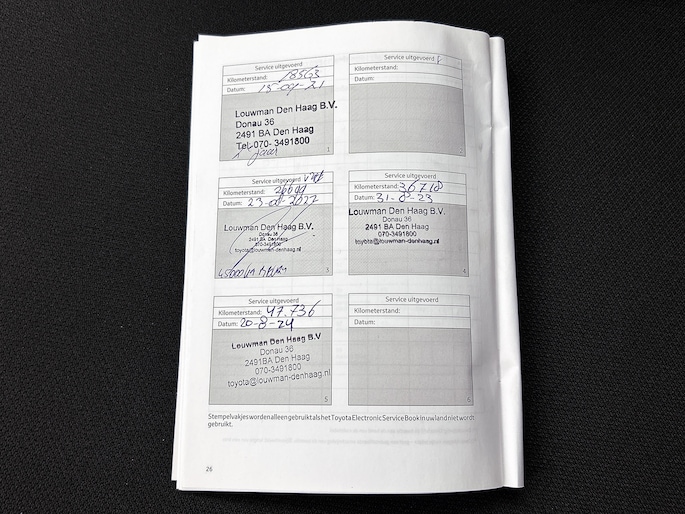 Service uitgevoerd
Kilometerstand: 18563
Datum: 15-09-21
Louwman Den Haag B.V.
Donau 36
2491 BA Den Haag
Tel. 070- 3491800
1 jaar
1
Service uitgevoerd
Kilometerstand:
Datum:
Service uitgevoerd
Kilometerstand:
Datum: 23-08-2022
Louwman Den Haag B.V.
Donau 36
2491 BA Den Haag
070-3491800
toyota@louwman-denhaag.nl
3
Service uitgevoerd
Kilometerstand: 36718
Datum: 31-8-23
Louwman Den Haag B.V.
Donau 36
2491 BA Den Haag
070-3491800
toyota@louwman-denhaag.nl
4
Service uitgevoerd
Kilometerstand: 47.736
Datum: 20-8-24
Louwman Den Haag B.V
Donau 36
2491BA Den Haag
070-3491800
toyota@louwman-denhaag.nl
5
Service uitgevoerd
Kilometerstand:
Datum:
Stempelvakjes worden alleen gebruikt als het Toyota Electronic Service Book in uw land niet wordt
gebruikt.
26